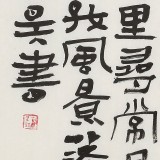 里尋常見
好風景落
書